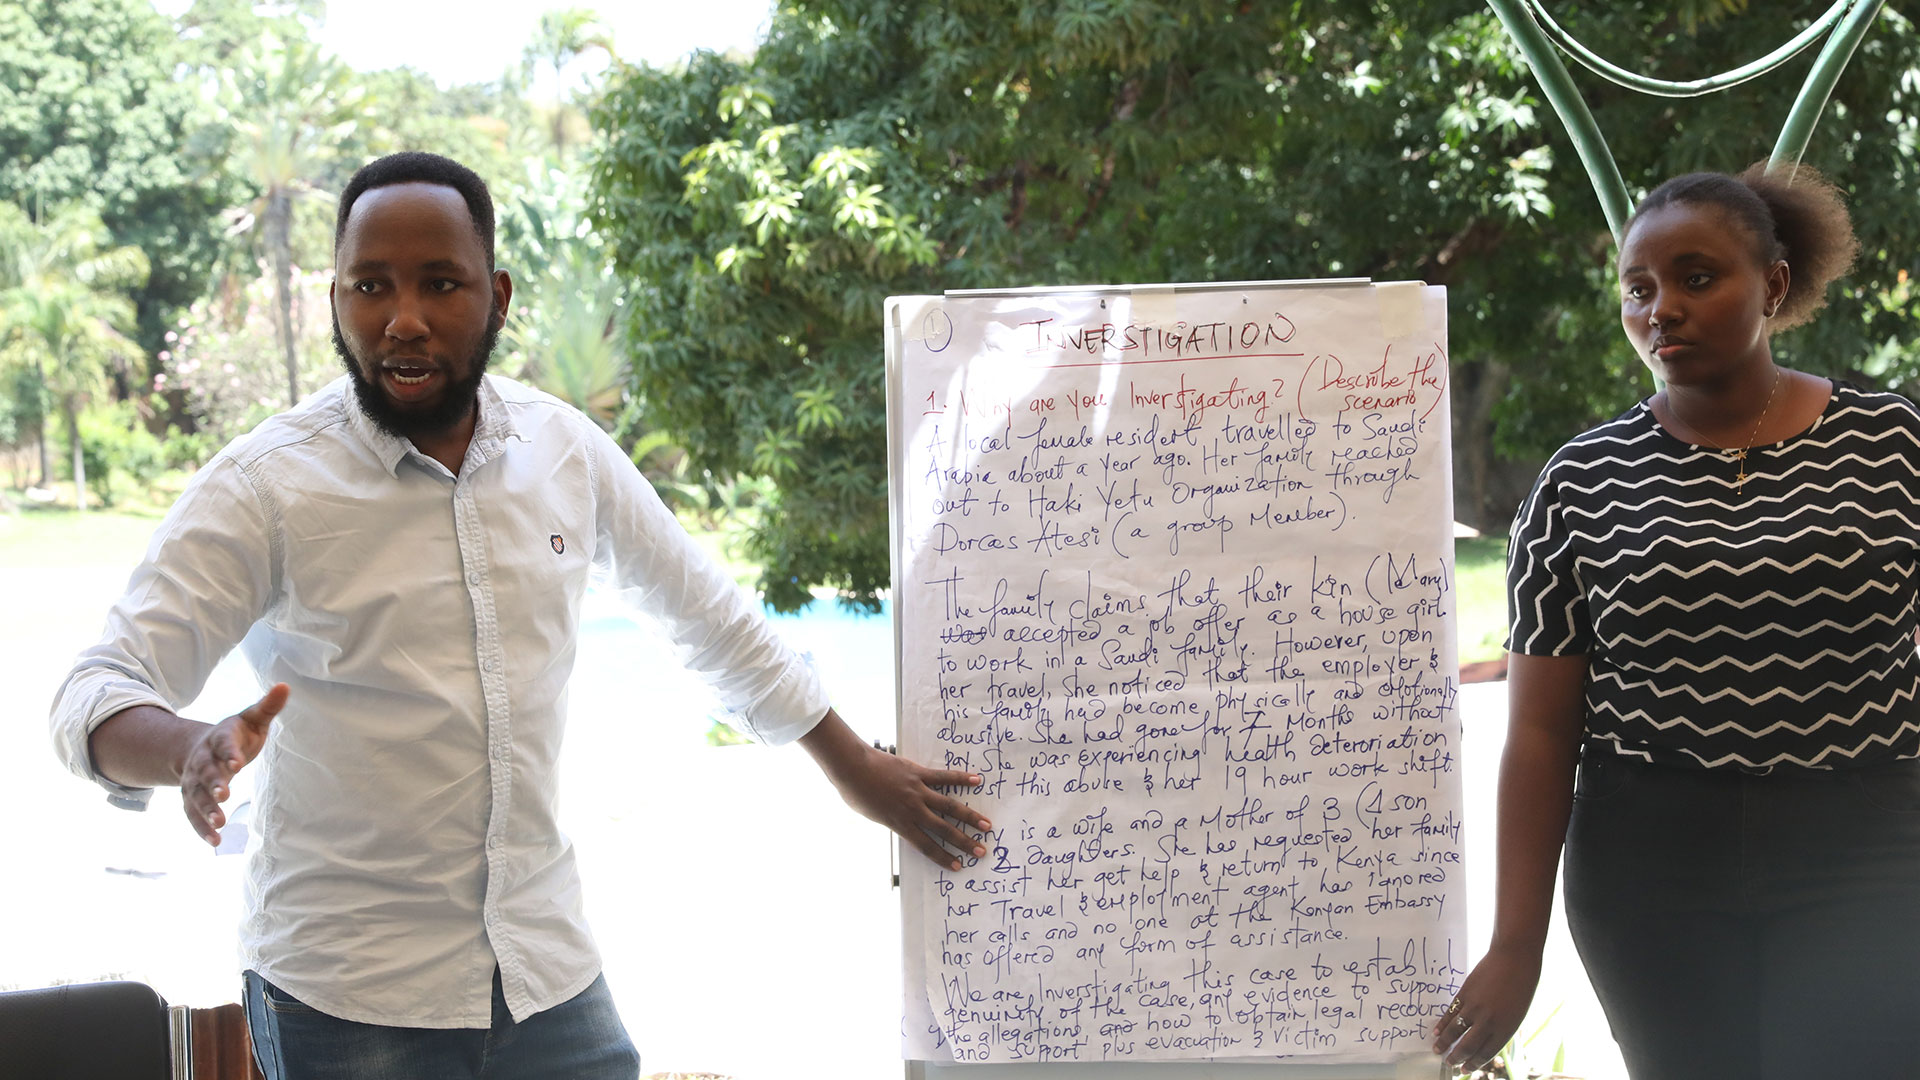 1
INVERSTIGATION
1. Why are you Inverstigating? (Describe the
scenario)
A local female resident travelled to Saudi
Arabia about a year ago. Her family reached
out to Haki Yetu Organization through
Dorcas Atesi (a group Member).
The family claims that their kin (Mary)
was accepted a job offer as a house girl
to work in a Saudi family. However, upon
her travel, she noticed that the employer &
his family had become physically and emotionally
abusive. She had gone for 7 Months without
pay. She was experiencing health deterioriation
amidst this abuse & her 19 hour work shift.
Mary is a wife and a Mother of 3 (1 son
and 2 daughters. She has requested her family
to assist her get help & return to Kenya since
her Travel & employment agent has ignored
her calls and no one at the Kenyan Embassy
has offered any form of assistance.
We are Inverstigating this case to establish
genuinity of the case, any evidence to support
the allegations, and how to obtain legal recourse
and support plus evacuation & victim support